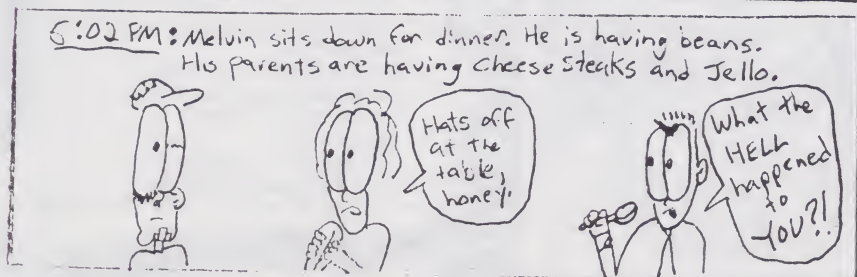 6:02 PM: Melvin sits down for dinner. He is having beans.
His parents are having Cheese Steaks and Jello.
Hats off
at the
table,
honey.
What the
HELL
happened
to
YOU?!